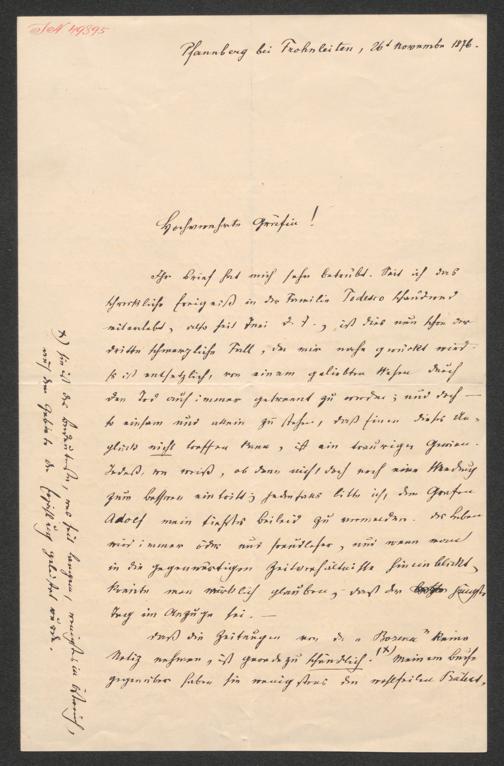 JN 49395
Pfannberg bei Frohnleiten, 26t November 1876.
Hochverehrte Gräfin!
Ihr Brief hat mich sehr betrübt. Seit ich das
schreckliche Ereigniß in der Familie Todesco schaudernd
miterlebt, also seit Juni d. J., ist dies nun schon der
dritte schmerzliche Fall, der mir nahe gerückt wird.
Es ist entsetzlich, von einem geliebten Wesen durch
den Tod auf immer getrennt zu werden; und doch —
so einsam und allein zu stehen, daß Einen dieses Un-
glück nicht treffen kann, ist ein trauriger Gewinn.
Indeß, wer weiß, ob denn nicht doch noch eine Wendung
zum besseren eintritt; jedenfalls bitte ich, dem Grafen
Adolf mein tiefstes Beileid zu vermelden. Das Leben
wird immer öder und freudloser, und wenn man
in die gegenwärtigen Zeitverhältnisse hineinblickt,
könnte man wirklich glauben, daß der jüngste
Tag im Anzuge sei. —
Daß die Zeitungen von der „Bozena" keine
Notiz nehmen, ist geradezu schändlich! *) Meinem Buche
gegenüber haben sie wenigstens den wohlfeilen
*) Sie ist das Bedeutendste, was seit langem, wenigstens in Östreich,
auf dem Gebiete der Erzählung geleistet wurde.